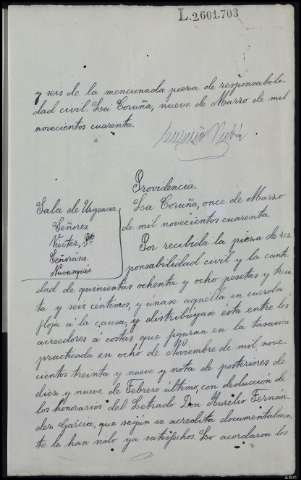 L.2601.703
y
de la mencionada pieza de responsabili-
dad civil La Coruña, nueve de Marzo de mil
novecientos cuarenta.
Providencia.
Sala de Urgencia
La Coruña, once de Marzo
Señores
de mil novecientos cuarenta
Por recibida la pieza de res-
Señoráns
ponsabilidad civil y la canti-
dad de quinientas ochenta y ocho pesetas y
ta y seis céntimos, y únase aquella en cuerda
floja a la causa, y distribúyase esta entre los
acreedores a costas que figuran en la tasación
practicada en ocho de Noviembre de mil nove-
cientos treinta y nueve y nota de posteriores de
diez y nueve de Febrero último, con deducción de
los honorarios del Letrado Don Aurelio Fernán-
dez García, que según se acredita documentalmen-
te le han sido ya satisfechos. Lo acordaron los